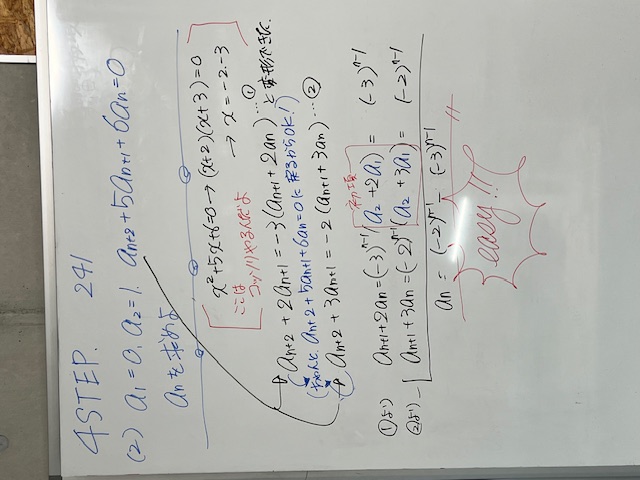 4STEP. 241
(2) a₁=0, a₂=1. aₙ₊₂+5aₙ₊₁+6aₙ=0
aₙを求めよ
x²+5x+6=0→(x+2)(x+3)=0
→ x=-2.-3
ここは
コッソリやるんだよ
aₙ₊₂+2aₙ₊₁=-3(aₙ₊₁+2aₙ)…① と変形できた.
(ちゃんと aₙ₊₂+5aₙ₊₁+6aₙ=0に戻るからOK!)
aₙ₊₂+3aₙ₊₁=-2(aₙ₊₁+3aₙ)…②
初項
①より aₙ₊₁+2aₙ=(-3)ⁿ⁻¹(a₂+2a₁)=(-3)ⁿ⁻¹
②より -) aₙ₊₁+3aₙ=(-2)ⁿ⁻¹(a₂+3a₁)=(-2)ⁿ⁻¹
aₙ=(-2)ⁿ⁻¹-(-3)ⁿ⁻¹
easy!!